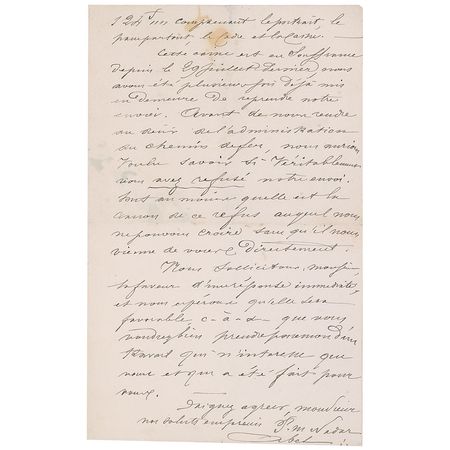 124 m comprenant le portrait le
passepartout le cadre et la caisse.
Cette caisse est en Souffrance
depuis le 29 Juillet dernier, nous
avons été plusieurs fois déjà mis
en demeure de reprendre notre
envoi. Avant de nous rendre
au désir de l'administration
du chemin de fer, nous aurions
voulu savoir si véritablement
vous avez refusé notre envoi.
tout au moins quelle est la
raison de ce refus auquel nous
ne pouvons croire sans qu'il nous
vienne de vous directement.
Nous Sollicitons, monsieur,
la faveur d'une réponse immédiate,
et nous espérons qu'elle sera
favorable c-à-d- que vous
voudrez bien prendre possession d'un
travail qui n'intéresse que
vous et qui a été fait pour
vous.
Daignez agréer, monsieur
nos saluts empressés P. m Nadar